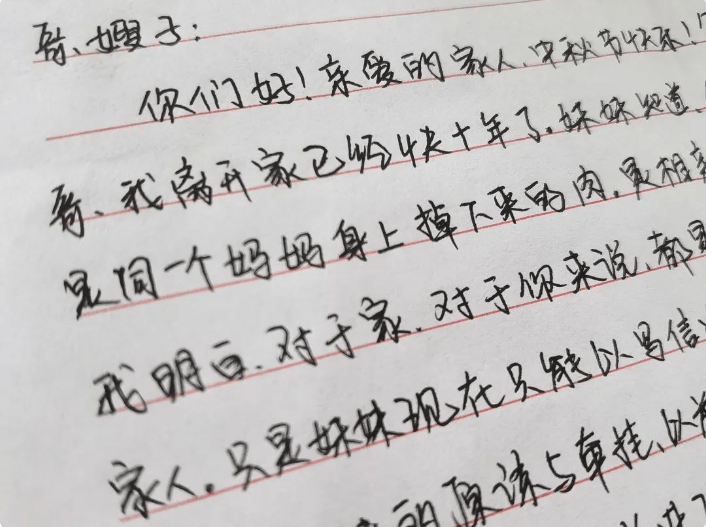 哥、嫂子：
你们好！亲爱的家人、中秋节快乐！
哥、我离开家已经快十年了.妹妹知道、
是同一个妈妈身上掉下来的肉.是相亲
我明白.对于家.对于你来说、都是
家人。只是妹妹现在只能以写信
的原谅与牵挂、以